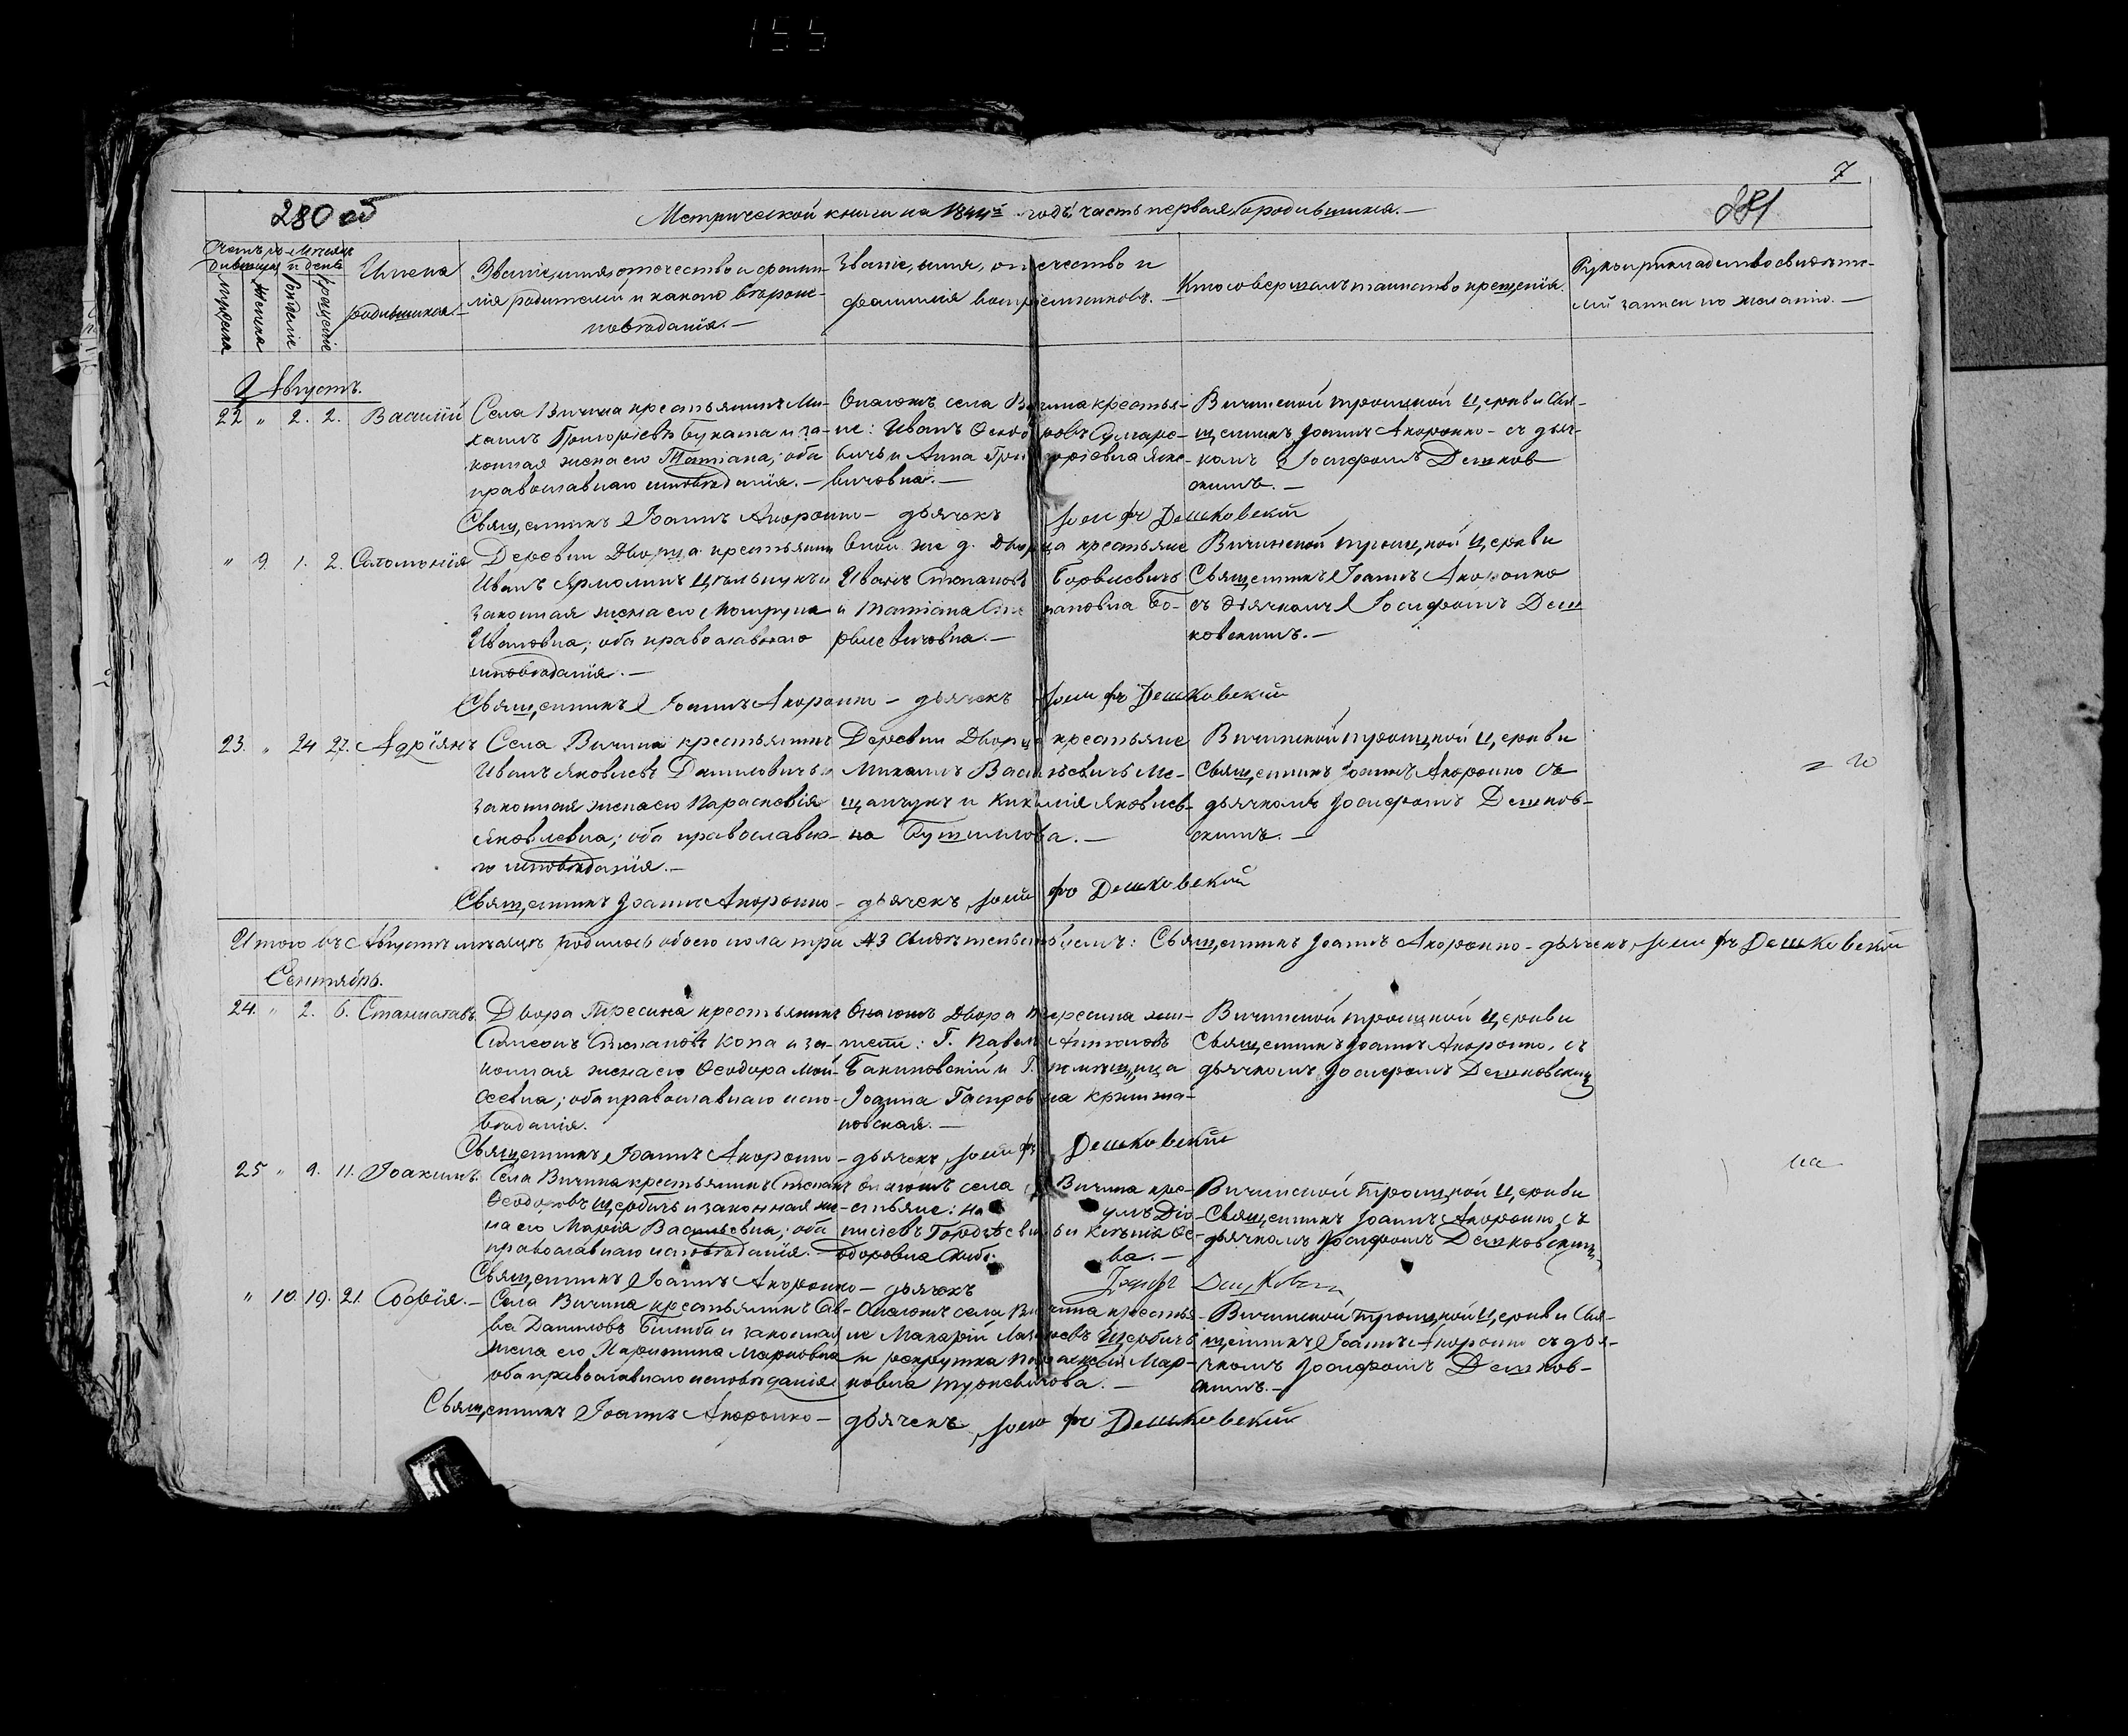 155
7
280 об
Метрической книги на 1844й годъ часть первая, о родившихся.—
281
Счетъ ро-
дившихся
Мѣсяцъ
и день
мужеска
женска
рожденіе
крещеніе
Имена
родившихся.—
Званіе, имя, отечество и фами-
лія родителей и какого вѣроис-
повѣданія.—
Званіе, имя, отечество и
фамилія воспріемниковъ.—
Кто совершалъ таинство крещенія.
Рукоприкладство свидѣте-
лей записи по желанію.—
Августъ.
22 " 2. 2. Василій
Села Вичина крестьянинъ Ми-
хаилъ Григоріевъ Буката и за-
конная жена его Татіана; оба
православнаго исповѣданія.—
Онагожъ села Вичина крестья-
не: Иванъ Ѳеодоровъ
вичъ и Анна Григоріевна
вичовна.—
Вичинской троицкой Церкви Свя-
щенникъ Іоаннъ Акоронко - съ дьяч-
комъ Іосифомъ Дешков-
скимъ.—
Священникъ Іоаннъ Акоронко - дьячекъ Іосифъ Дешковскій
" 9. 1. 2. Соломонія
Деревни Дворца крестьянинъ
Иванъ Ярмолинъ и
законная жена его
Ивановна; оба православнаго
исповѣданія.—
Оной же д. Дворца крестьяне
Иванъ Степановъ Борвсевичъ
и Татіана Степановна Бо-
рвсевичовна.—
Вичинской троицкой Церкви
Священникъ Іоаннъ Акоронко
съ дьячкомъ Іосифомъ Деш
ковскимъ.—
Священникъ Іоаннъ Акоронко - дьячекъ Іосифъ Дешковскій
23. " 24 27. Адріянъ
Села Вичина крестьянинъ
Иванъ Яковлевъ Даниловичъ и
законная жена его Парасковія
Яковлевна; оба православна-
го исповѣданія.—
Деревни Дворца крестьяне
Михаилъ Васильевичъ Ме-
щанчукъ и Киликія Яковлев-
на Бутимова.—
Вичинской троицкой Церкви
Священникъ Іоаннъ Акоронко съ
дьячкомъ Іосифомъ Дешков-
скимъ.—
Священникъ Іоаннъ Акоронко - дьячекъ Іосифъ Дешковскій
Итого въ Августѣ мѣсяцѣ родилось обоего пола три №3 Свидѣтельствуемъ: Священникъ Іоаннъ Акоронко - дьячекъ Іосифъ Дешковскій
Сентябрь.
24. " 2. 6. Станиславъ
Двора Тресина крестьянинъ
Симеонъ Степановъ Копа и за-
конная жена его Ѳеодора Мой-
сеевна; оба православнаго испо-
вѣданія.
Онагожъ Двора Тересина жи-
тели: Г. Павелъ Антоновъ
Бакиновскій и Г. помѣщица
Іоанна Гаспровна Кржижа-
новская.—
Вичинской троицкой Церкви
Священникъ Іоаннъ Акоронко, съ
дьячкомъ Іосифомъ Дешковскимъ
Священникъ Іоаннъ Акоронко - дьячекъ Іосифъ Дешковскій
25 " 9. 11. Іоакимъ.
Села Вичина крестьянинъ Степанъ
Ѳеодоровъ Щербичъ и законная же-
на его Марія Васильевна; оба
православнаго исповѣданія.
Онагожъ села Вичина кре-
стьяне: На умъ Діо-
нисіевъ Городѣевичъ и Ксенія Ѳе-
одоровна
ва.—
Вичинской троицкой Церкви
Священникъ Іоаннъ Акоронко, съ
дьячкомъ Іосифомъ Дешковскимъ
Священникъ Іоаннъ Акоронко - дьячекъ Іосифъ Дешковскій
" 10. 19. 21. Софія.—
Села Вичина крестьянинъ Сав-
ва Даниловъ и законная
жена его Харитина Марковна
оба православнаго исповѣданія
Онагожъ села Вичина крестья-
не Макарій Щербичъ
и рекрутка Параскевія Мар-
ковна
Вичинской троицкой Церкви Свя-
щенникъ Іоаннъ Акоронко съ дья-
чкомъ Іосифомъ Дешков-
скимъ.—
Священникъ Іоаннъ Акоронко - дьячекъ Іосифъ Дешковскій